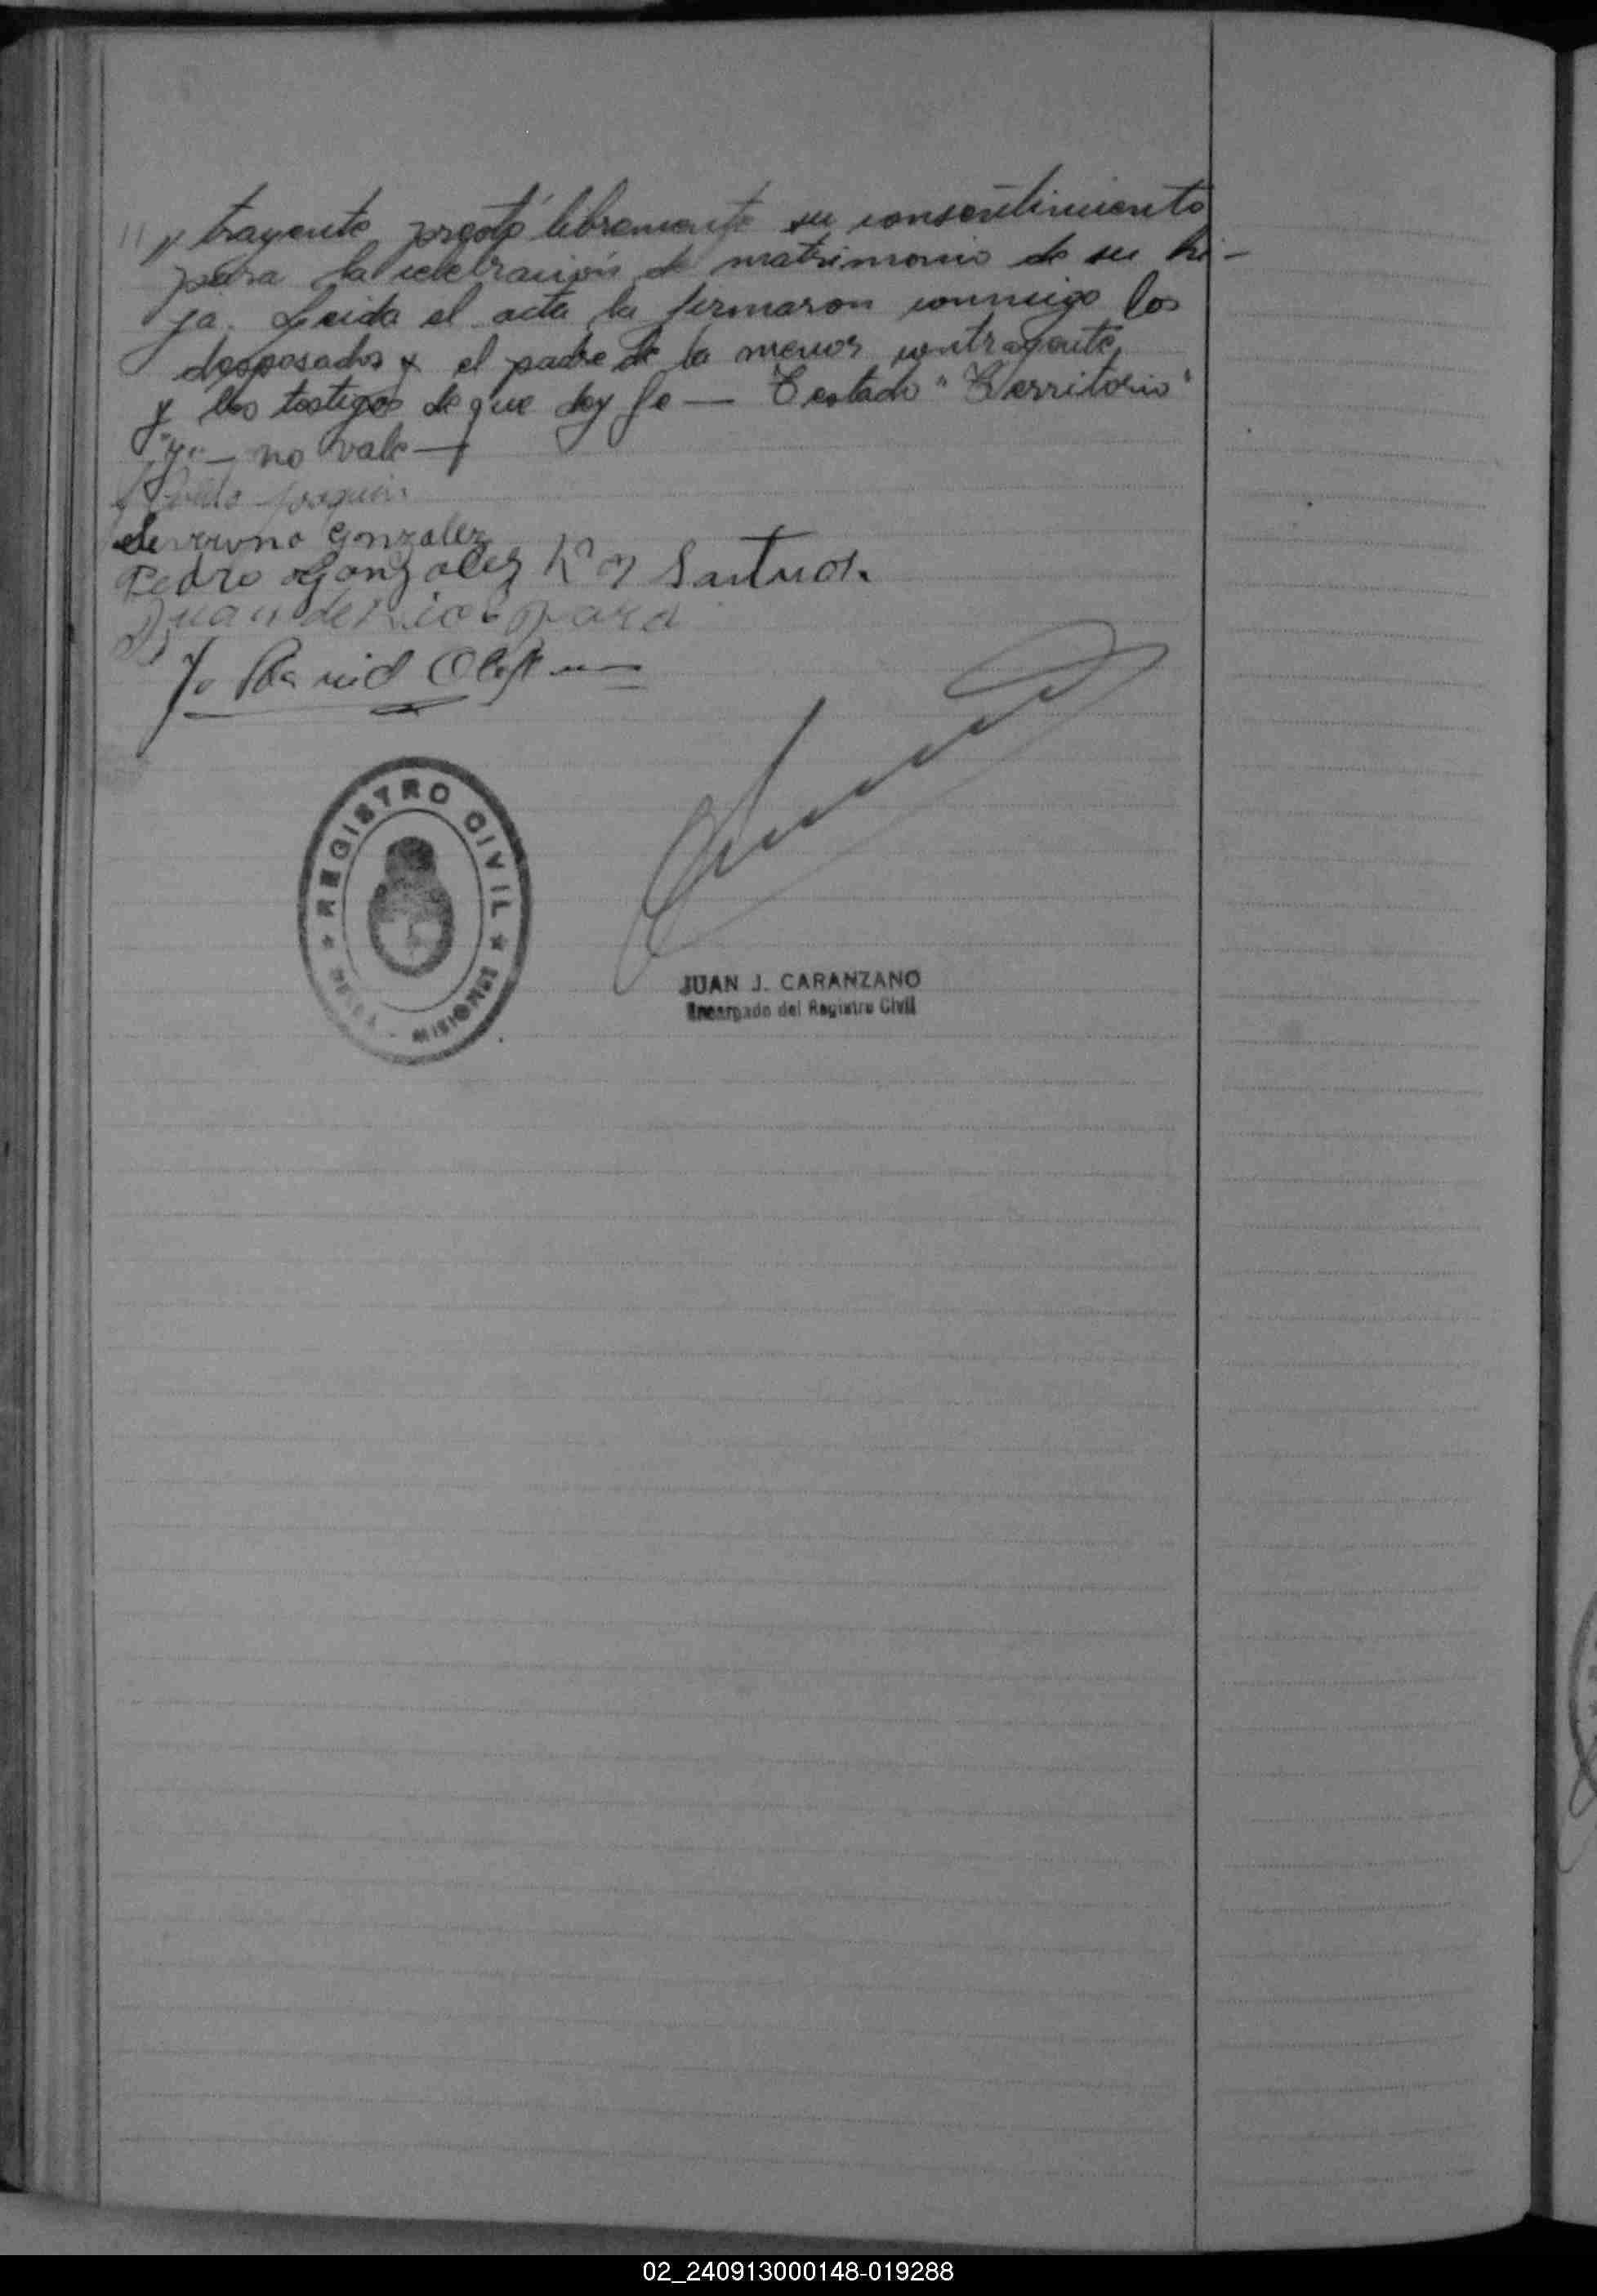 " trayente prestó libremente su consentimiento
para la celebración de matrimonio de su hi-
ja. Leida el acta la firmaron conmigo los
desposados y el padre de la menor contrayente,
y los testigos de que doy fe — Testado "Territorio"
"y" — no vale —
Joaquin
Severyno Gonzalez
Pedro Gonzalez Santos.
Juan de
David
REGISTRO CIVIL
MISIONES
JUAN J. CARANZANO
Encargado del Registro Civil
02_240913000148-019288